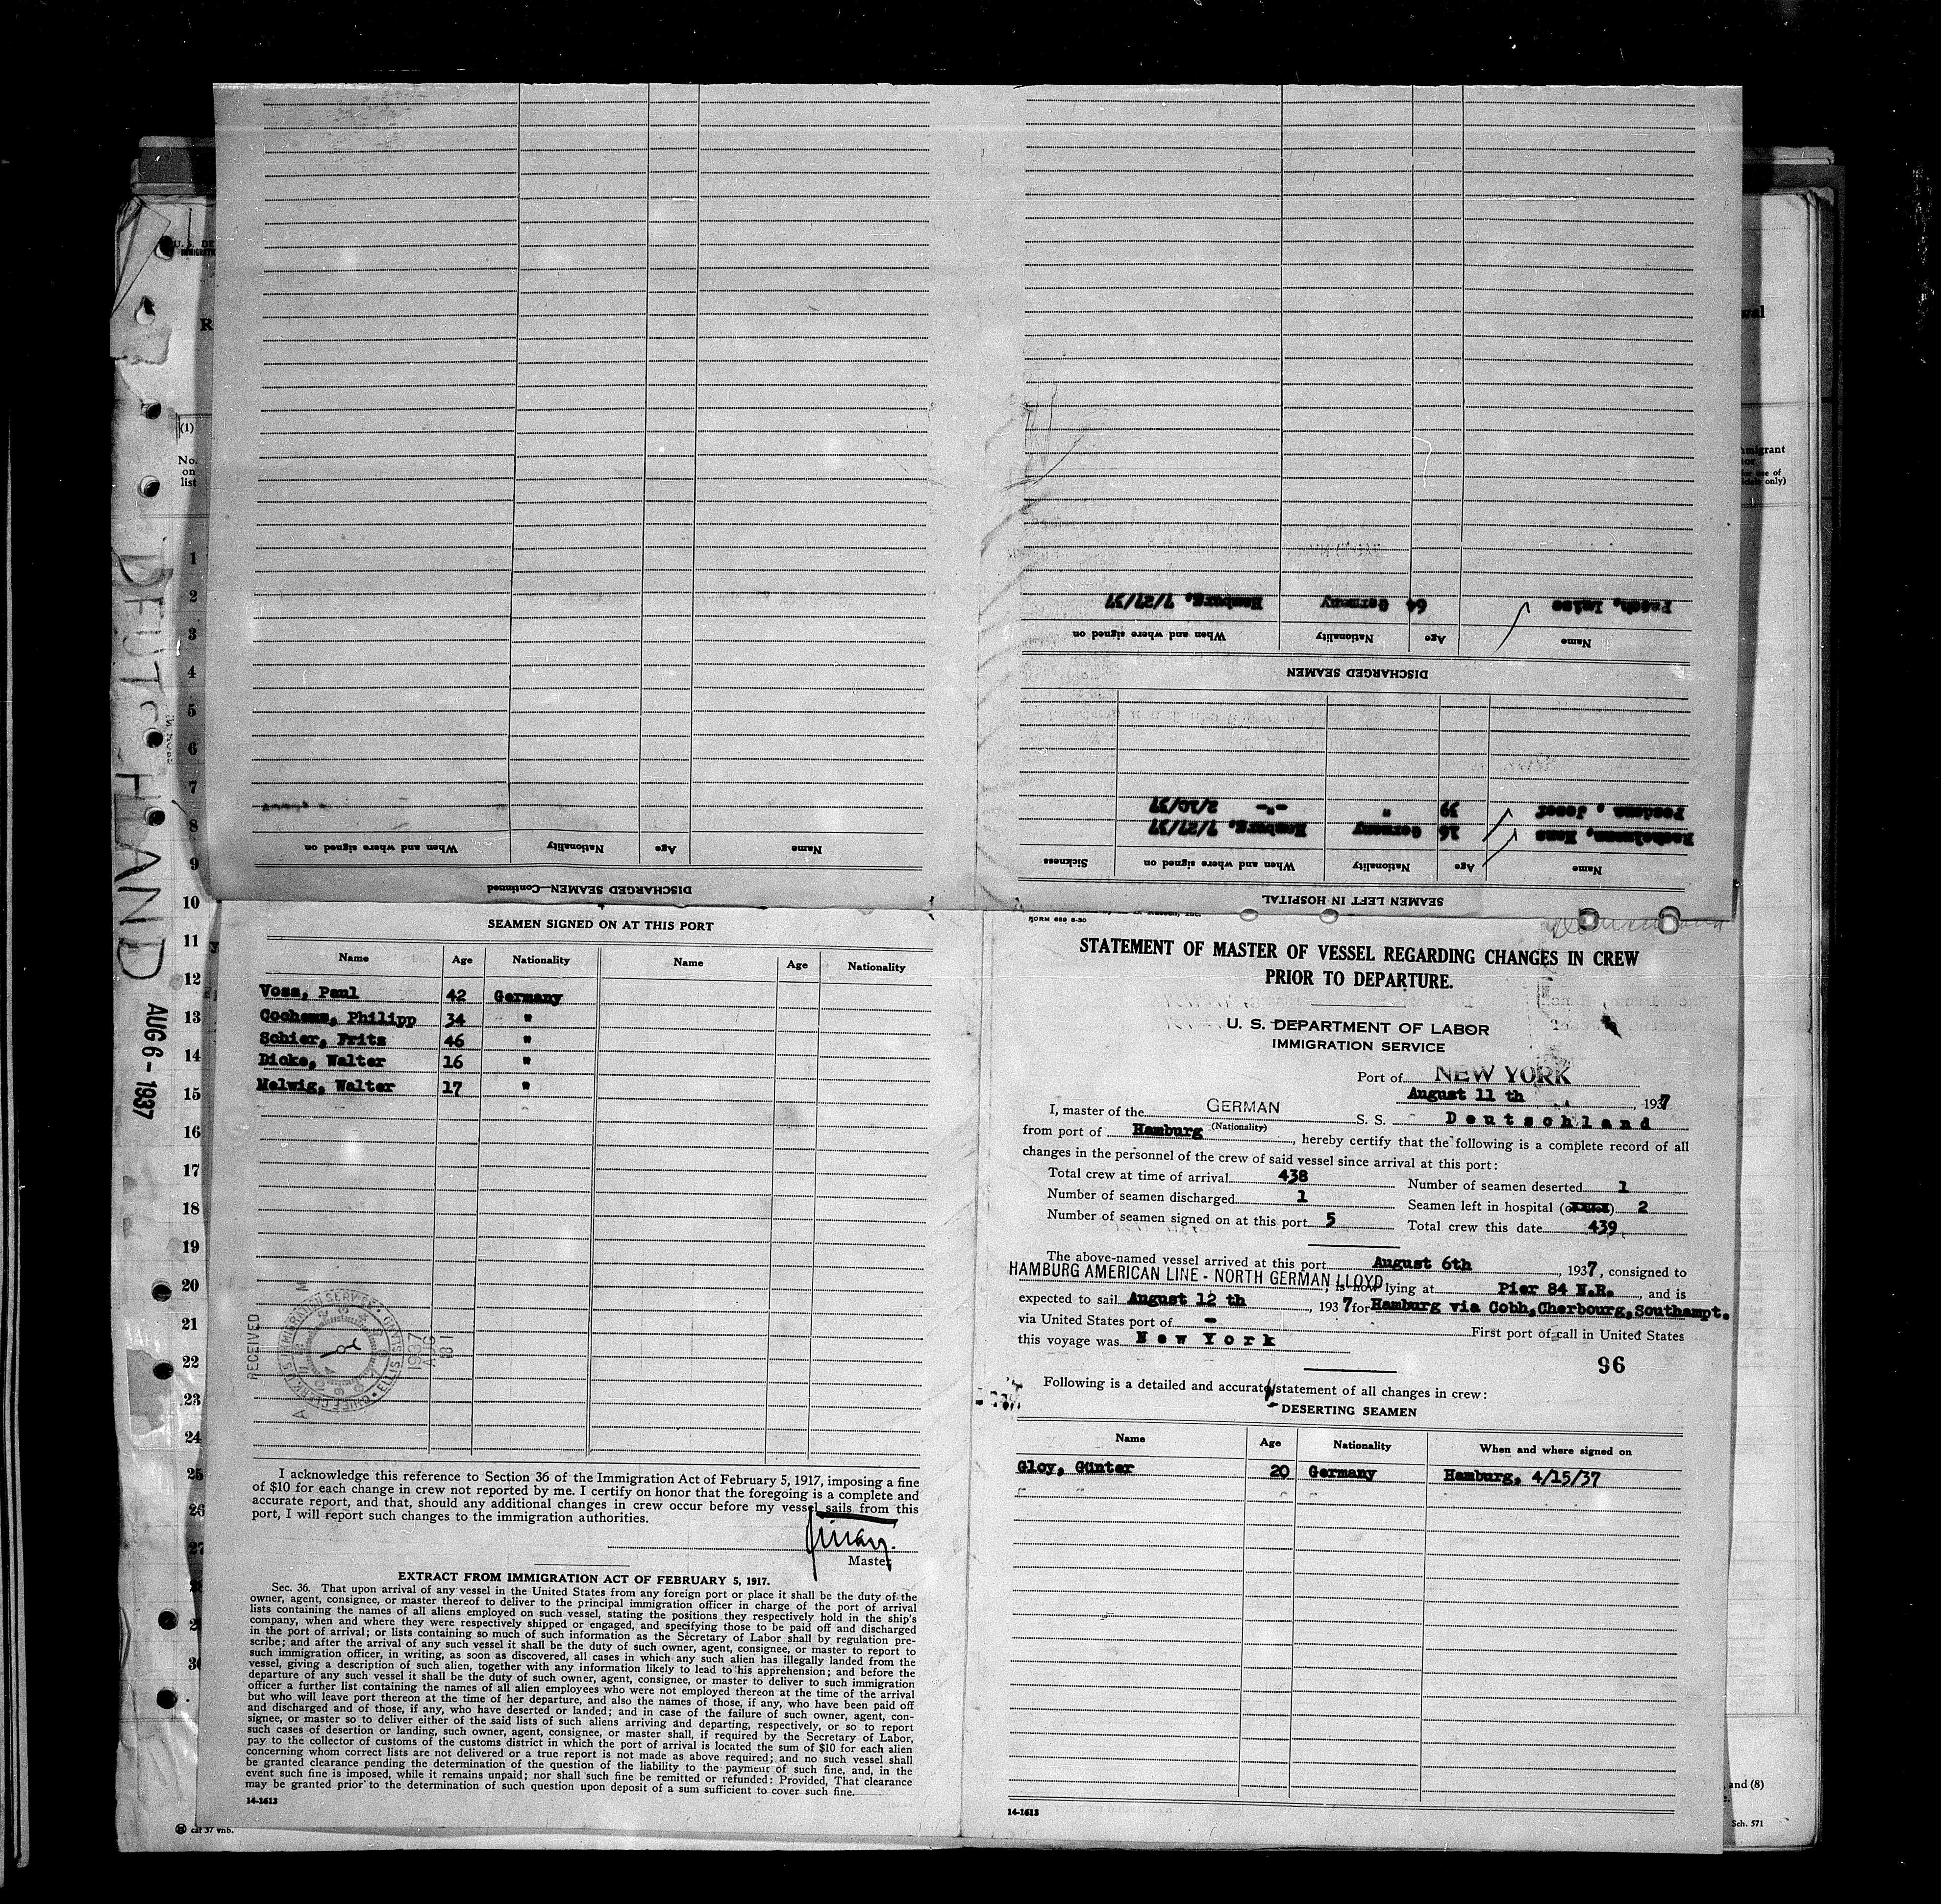 DISCHARGED SEAMEN—Continued
Name Age Nationality When and where signed on
SEAMEN LEFT IN HOSPITAL
Name Age Nationality When and where signed on Sickness
Hans 16 Germany Hamburg, 7/27/37
Josef 39 " -"- 2/20/37
DISCHARGED SEAMEN
Name Age Nationality When and where signed on
Luise 64 Germany Hamburg, 7/27/37
SEAMEN SIGNED ON AT THIS PORT
Name Age Nationality Name Age Nationality
Voss, Paul 42 Germany
Cochems, Philipp 34 "
Schier, Fritz 46 "
Dicke, Walter 16 "
Helwig, Walter 17 "
RECEIVED
I acknowledge this reference to Section 36 of the Immigration Act of February 5, 1917, imposing a fine
of $10 for each change in crew not reported by me. I certify on honor that the foregoing is a complete and
accurate report, and that, should any additional changes in crew occur before my vessel sails from this
port, I will report such changes to the immigration authorities.
Master
EXTRACT FROM IMMIGRATION ACT OF FEBRUARY 5, 1917.
Sec. 36. That upon arrival of any vessel in the United States from any foreign port or place it shall be the duty of the
owner, agent, consignee, or master thereof to deliver to the principal immigration officer in charge of the port of arrival
lists containing the names of all aliens employed on such vessel, stating the positions they respectively hold in the ship's
company, when and where they were respectively shipped or engaged, and specifying those to be paid off and discharged
in the port of arrival; or lists containing so much of such information as the Secretary of Labor shall by regulation pre-
scribe; and after the arrival of any such vessel it shall be the duty of such owner, agent, consignee, or master to report to
such immigration officer, in writing, as soon as discovered, all cases in which any such alien has illegally landed from the
vessel, giving a description of such alien, together with any information likely to lead to his apprehension; and before the
departure of any such vessel it shall be the duty of such owner, agent, consignee, or master to deliver to such immigration
officer a further list containing the names of all alien employees who were not employed thereon at the time of the arrival
but who will leave port thereon at the time of her departure, and also the names of those, if any, who have been paid off
and discharged and of those, if any, who have deserted or landed; and in case of the failure of such owner, agent, con-
signee, or master so to deliver either of the said lists of such aliens arriving and departing, respectively, or so to report
such cases of desertion or landing, such owner, agent, consignee, or master shall, if required by the Secretary of Labor,
pay to the collector of customs of the customs district in which the port of arrival is located the sum of $10 for each alien
concerning whom correct lists are not delivered or a true report is not made as above required; and no such vessel shall
be granted clearance pending the determination of the question of the liability to the payment of such fine, and, in the
event such fine is imposed, while it remains unpaid; nor shall such fine be remitted or refunded: Provided, That clearance
may be granted prior to the determination of such question upon deposit of a sum sufficient to cover such fine.
14-1613
FORM 689 8-30
STATEMENT OF MASTER OF VESSEL REGARDING CHANGES IN CREW
PRIOR TO DEPARTURE.
U. S. DEPARTMENT OF LABOR
IMMIGRATION SERVICE
Port of NEW YORK
August 11 th, 1937
I, master of the GERMAN S. S. Deutschland
(Nationality)
from port of Hamburg, hereby certify that the following is a complete record of all
changes in the personnel of the crew of said vessel since arrival at this port:
Total crew at time of arrival 438 Number of seamen deserted 1
Number of seamen discharged 1 Seamen left in hospital 2
Number of seamen signed on at this port 5 Total crew this date 439
The above-named vessel arrived at this port August 6th, 1937, consigned to
HAMBURG AMERICAN LINE - NORTH GERMAN LLOYD, is now lying at Pier 84 N.R., and is
expected to sail August 12 th, 1937 for Hamburg via Cobh,Cherbourg,Southampt.
via United States port of - First port of call in United States
this voyage was New York
96
Following is a detailed and accurate statement of all changes in crew:
DESERTING SEAMEN
Name Age Nationality When and where signed on
Gloy, Günter 20 Germany Hamburg, 4/15/37
14-1613
DEUTSCHLAND
AUG 6-1937
(1)
No.
on
list
1
2
3
4
5
6
7
8
9
10
11
12
13
14
15
16
17
18
19
20
21
22
23
24
25
26
27
cat 37 vnb.
and (8)
Sch. 571